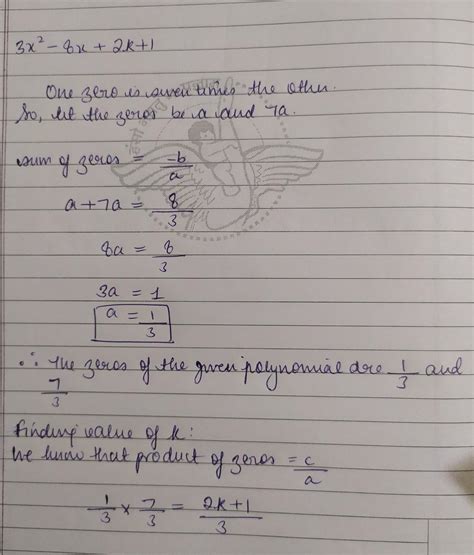 3x² - 8x + 2k+1
One zero is seven times the other.
So, let the zeros be a and 7a.
sum of zeros = -b/a
a+7a = 8/3
8a = 8/3
3a = 1
a = 1/3
∴ The zeros of the given polynomial are 1/3 and
7/3
Finding value of k:
We know that product of zeros = c/a
1/3 × 7/3 = 2k+1/3